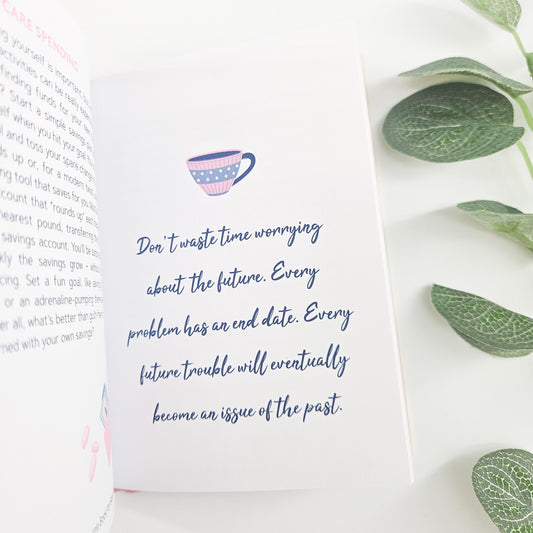 CARE SPENDING
yourself is important
activities can be really
finding funds for your
? Start a simple savings
when you hit your goal
and toss your spare change
up or, for a modern
ing tool that saves for you.
account that "rounds up"
nearest pound, transferring
savings account. You'll be
the savings grow -
Set a fun goal, like
or an adrenaline-pumping
all, what's better than
with your own savings?
Don't waste time worrying
about the future. Every
problem has an end date. Every
future trouble will eventually
become an issue of the past.